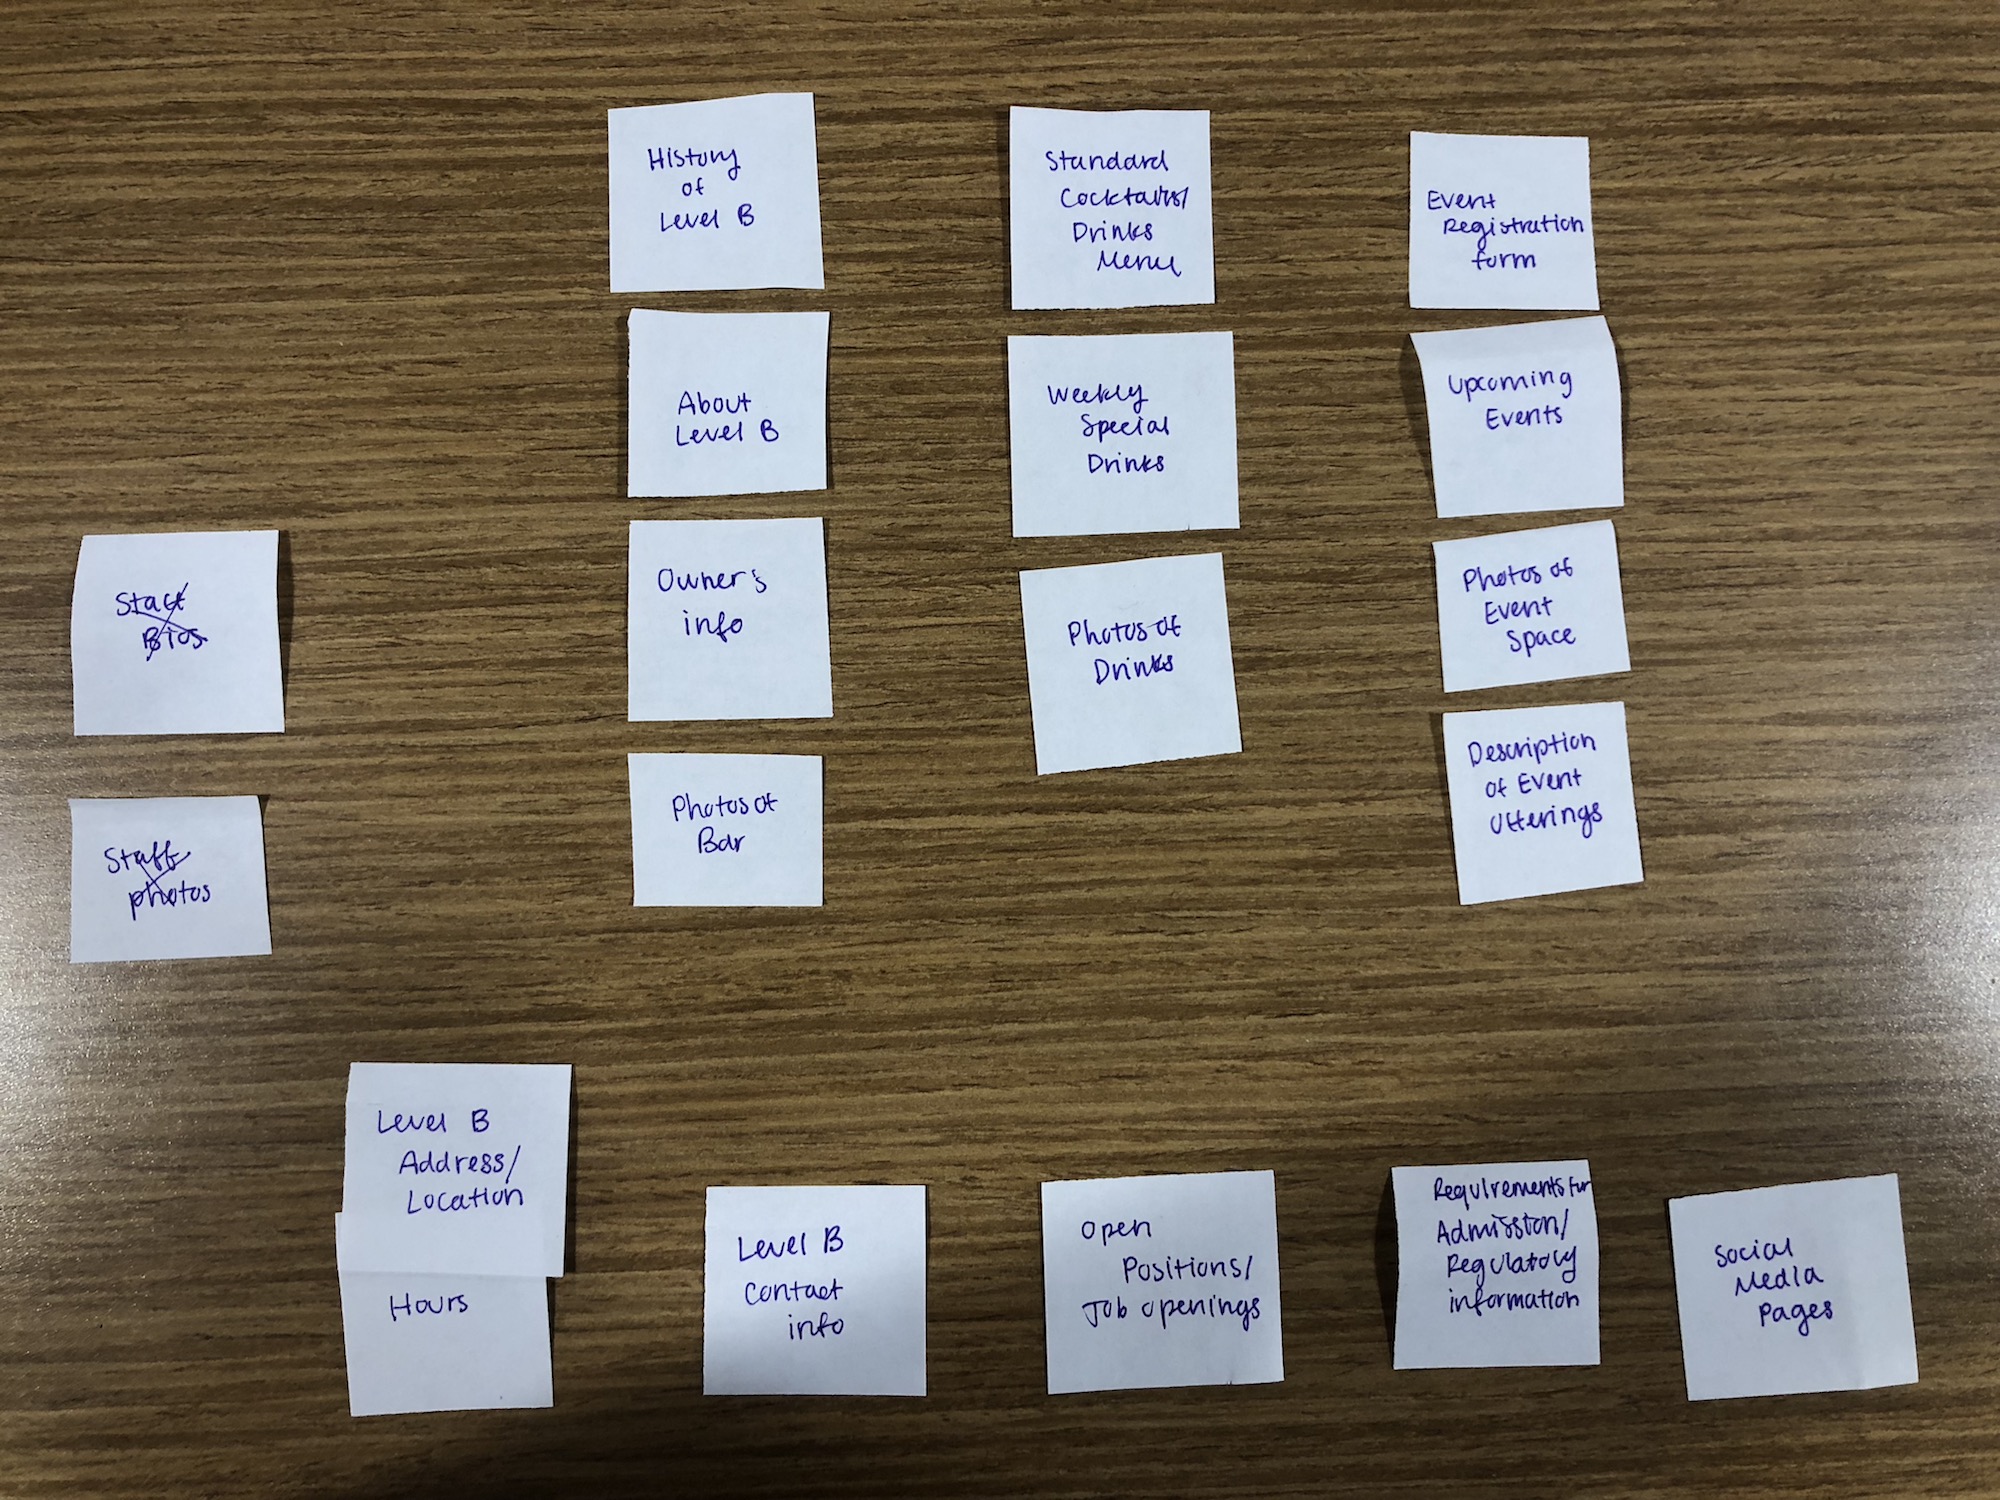 History
of
Level B
About
Level B
Owner's
info
Photos of
Bar
Standard
Cocktails/
Drinks
Menu
Weekly
Special
Drinks
Photos of
Drinks
Event
Registration
form
Upcoming
Events
Photos of
Event
Space
Description
of Event
Offerings
Staff
Bios
Staff
photos
Level B
Address/
Location
Hours
Level B
Contact
info
Open
Positions/
Job openings
Requirements for
Admission/
Regulatory
information
Social
Media
Pages